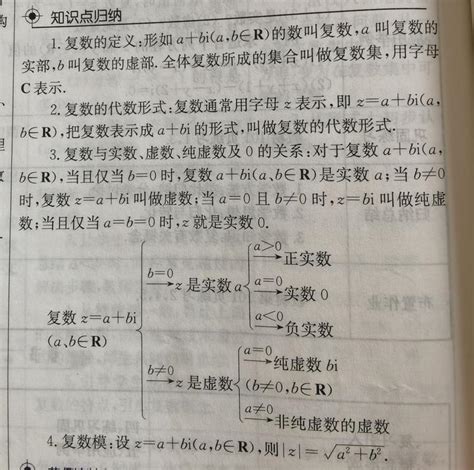 知识点归纳
1.复数的定义:形如a+bi(a,b∈R)的数叫复数,a叫复数的
实部,b叫复数的虚部.全体复数所成的集合叫做复数集,用字母
C表示.
2.复数的代数形式:复数通常用字母z表示,即z=a+bi(a,
b∈R),把复数表示成a+bi的形式,叫做复数的代数形式.
3.复数与实数、虚数、纯虚数及0的关系:对于复数a+bi(a,
b∈R),当且仅当b=0时,复数a+bi(a、b∈R)是实数a;当b≠0
时,复数z=a+bi叫做虚数;当a=0且b≠0时,z=bi叫做纯虚
数;当且仅当a=b=0时,z就是实数0.
复数z=a+bi
(a、b∈R)
b=0
z是实数a
a>0
正实数
a=0
实数0
a<0
负实数
b≠0
z是虚数
(b≠0,b∈R)
a=0
纯虚数bi
a≠0
非纯虚数的虚数
4.复数模:设z=a+bi(a,b∈R),则|z|=√a²+b².